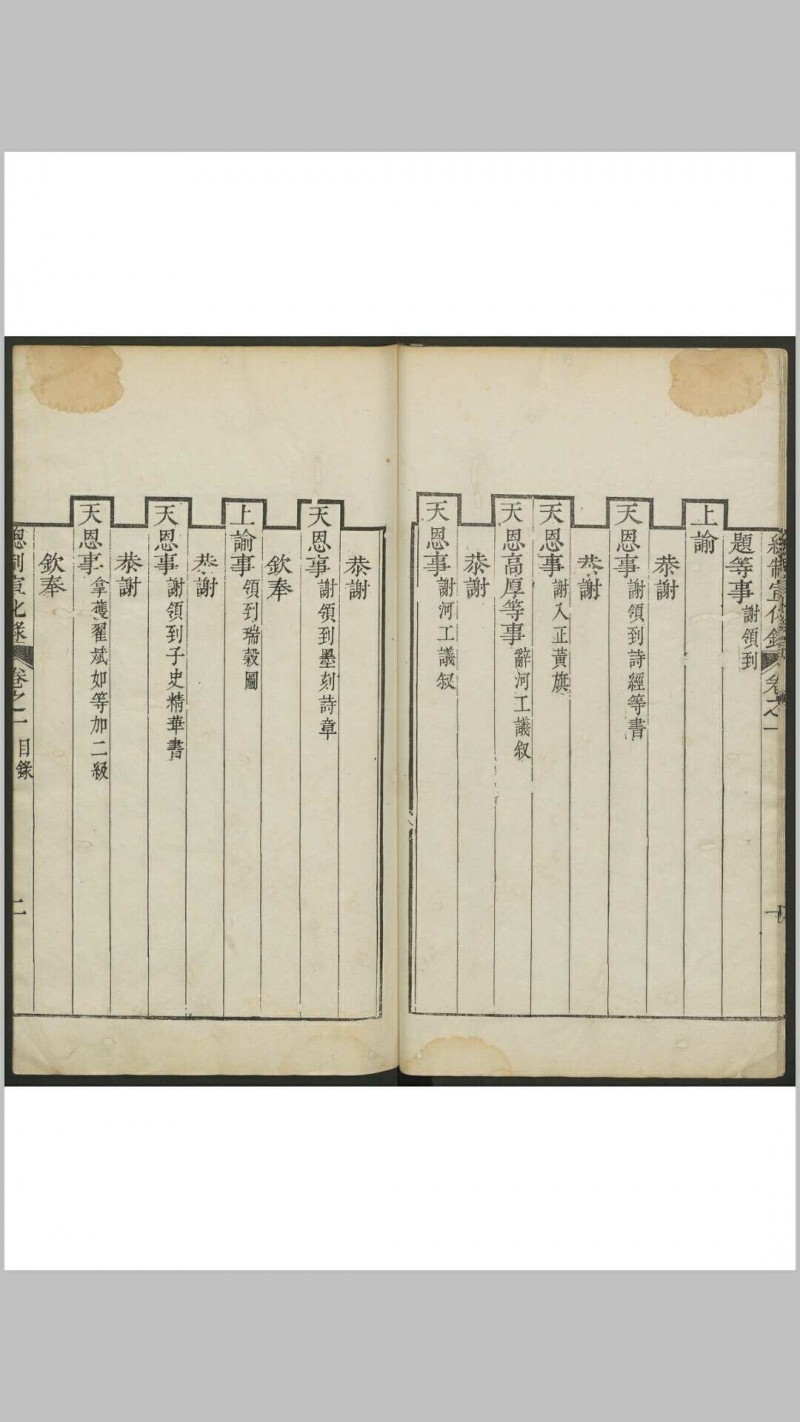 總制宣化錄 卷之一 一
題等事 謝領到
上諭
恭謝
天恩事 謝領到詩經等書
恭謝
天恩事 謝入正黃旗
天恩高厚等事 辭河工議叙
恭謝
天恩事 謝河工議叙
恭謝
天恩事 謝領到墨刻詩章
欽奉
上諭事 領到瑞穀圖
恭謝
天恩事 謝領到子史精華書
恭謝
天恩事 拿獲翟斌如等加二級
欽奉
總制宣化錄 卷之一 目錄 二